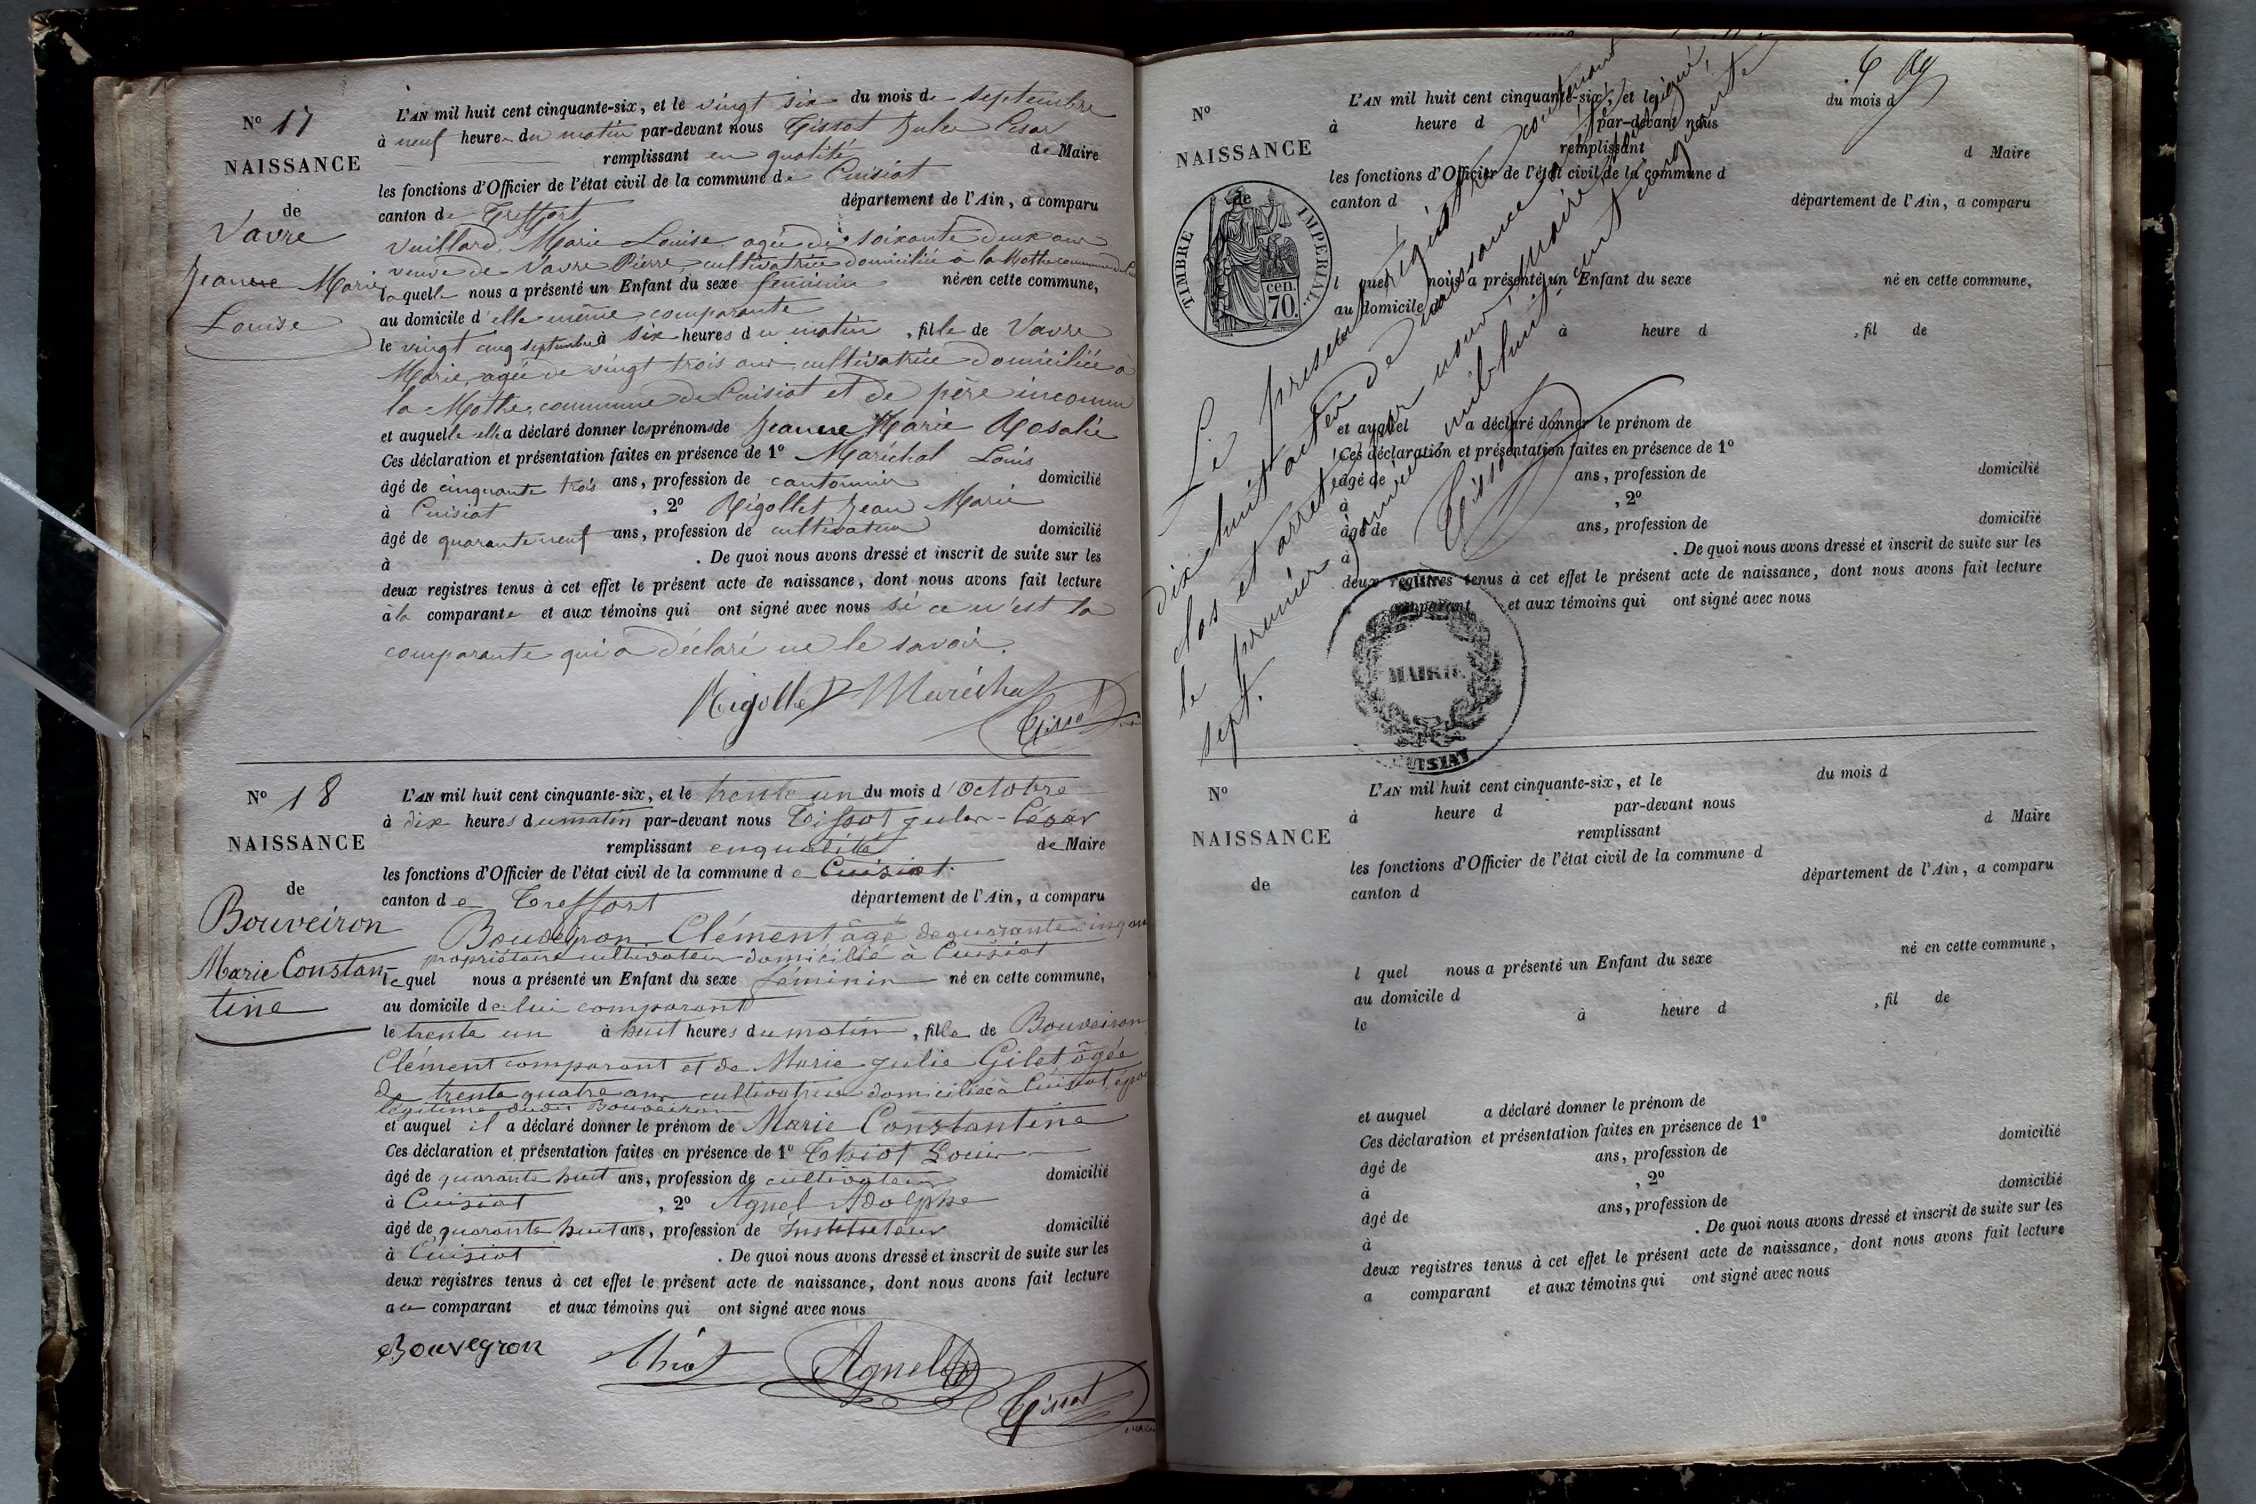 N° 17
NAISSANCE
de
Vavre
Jeanne Marie
Louise
L'AN mil huit cent cinquante-six, et le vingt six du mois de septembre
à neuf heures du matin par-devant nous Tissot Jules César
remplissant en qualité de Maire
les fonctions d'Officier de l'état civil de la commune de Cuisiat
canton de Treffort département de l'Ain, a comparu
Vuillard, Marie Louise agée de soixante deux ans
veuve de Vavre Pierre, cultivatrice domiciliée a la Mothe commune de
laquelle nous a présenté un Enfant du sexe feminin né en cette commune,
au domicile d'elle même comparante
le vingt cinq septembre à six heures du matin, fille de Vavre
Marie, agée de vingt trois ans cultivatrice domiciliée à
la Mothe, commune de Cuisiat et de père inconnu
et auquelle elle a déclaré donner les prénoms de Jeanne Marie Rosalie
Ces déclaration et présentation faites en présence de 1° Maréchal Louis
âgé de cinquante trois ans, profession de cantonnier domicilié
à Cuisiat, 2° Rigollet Jean Marie
âgé de quarante neuf ans, profession de cultivateur domicilié
à . De quoi nous avons dressé et inscrit de suite sur les
deux registres tenus à cet effet le présent acte de naissance, dont nous avons fait lecture
à la comparante et aux témoins qui ont signé avec nous si ce n'est la
comparante qui a déclaré ne le savoir.
Rigollet Maréchal
Tissot
N° 18
NAISSANCE
de
Bouveiron
Marie Constan-
tine
L'AN mil huit cent cinquante-six, et le trente un du mois d'Octobre
à dix heures du matin par-devant nous Tissot jules-César
remplissant en qualité de Maire
les fonctions d'Officier de l'état civil de la commune de Cuisiat
canton de Treffort département de l'Ain, a comparu
Bouveiron Clément âgé de quarante cinq ans
propriétaire cultivateur domicilié à Cuisiat
lequel nous a présenté un Enfant du sexe féminin né en cette commune,
au domicile de lui comparant
le trente un à huit heures du matin, fille de Bouveiron
Clément comparant et de Marie julie Gilet âgée
de trente quatre ans cultivatrice domiciliée à Cuisiat
légitime dudit Bouveiron
et auquel il a déclaré donner le prénom de Marie Constantine
Ces déclaration et présentation faites en présence de 1° Thiot Louis
âgé de quarante huit ans, profession de cultivateur domicilié
à Cuisiat, 2° Agnel Adolphe
âgé de quarante huit ans, profession de Instituteur domicilié
à Cuisiat. De quoi nous avons dressé et inscrit de suite sur les
deux registres tenus à cet effet le présent acte de naissance, dont nous avons fait lecture
au comparant et aux témoins qui ont signé avec nous
Bouveyron Thiot Agnel
Tissot
N°
NAISSANCE
de
TIMBRE IMPERIAL
70 cen.
L'AN mil huit cent cinquante-six, et le du mois d
à heure d par-devant nous
remplissant d Maire
les fonctions d'Officier de l'état civil de la commune d
canton d département de l'Ain, a comparu
l quel nous a présenté un Enfant du sexe né en cette commune,
au domicile
à heure d , fil de
et auquel a déclaré donner le prénom de
Ces déclaration et présentation faites en présence de 1°
âgé de ans, profession de domicilié
à , 2°
âgé de ans, profession de domicilié
à . De quoi nous avons dressé et inscrit de suite sur les
deux registres tenus à cet effet le présent acte de naissance, dont nous avons fait lecture
comparant et aux témoins qui ont signé avec nous
Le présent registre contenant
dix huit actes de naissance a été
clos et arrêté par nous, maire, soussigné,
le premier janvier mil huit cent cinquante
sept.
Tissot
MAIRIE
CUISIAT
N°
NAISSANCE
de
L'AN mil huit cent cinquante-six, et le du mois d
à heure d par-devant nous
remplissant d Maire
les fonctions d'Officier de l'état civil de la commune d
canton d département de l'Ain, a comparu
l quel nous a présenté un Enfant du sexe né en cette commune,
au domicile d
le à heure d , fil de
et auquel a déclaré donner le prénom de
Ces déclaration et présentation faites en présence de 1°
âgé de ans, profession de domicilié
à , 2°
âgé de ans, profession de domicilié
à . De quoi nous avons dressé et inscrit de suite sur les
deux registres tenus à cet effet le présent acte de naissance, dont nous avons fait lecture
a comparant et aux témoins qui ont signé avec nous